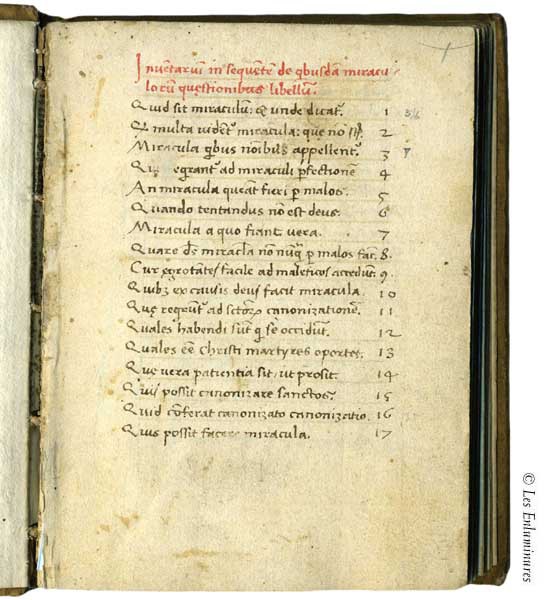 Inventarium in sequentem de q̄busdā miracu-
lorū questionibus libellum.
Quid sit miraculum: & unde dicatʳ. 1
Q multa videntʳ miracula: que nō sūt. 2
Miracula q̄bus noībus appellentʳ. 3
ad miraculi p̄fectionē 4
An miracula queāt fieri p malos. 5
Quando tentandus nō est deus. 6
Miracula a quo fiant vera. 7
Quare d̄s mirac̄la nō nūq̄ p malos fac̄. 8.
Cur egrotātes facile ad maleficos accedūt. 9.
Quibꝫ ex causis deus facit miracula. 10
Que reqrūtʳ ad sctorꝫ canonizationē. 11
Quales habendi sūt q̄ se occidūt. 12
Quales eē Christi martyres oportet. 13
Que vera patientia sit, ut prosit. 14
Quis possit canonizare sanctos. 15
Quid cōferat canonizato canonizatio. 16
Quis possit facere miracula. 17
© Les Enluminures